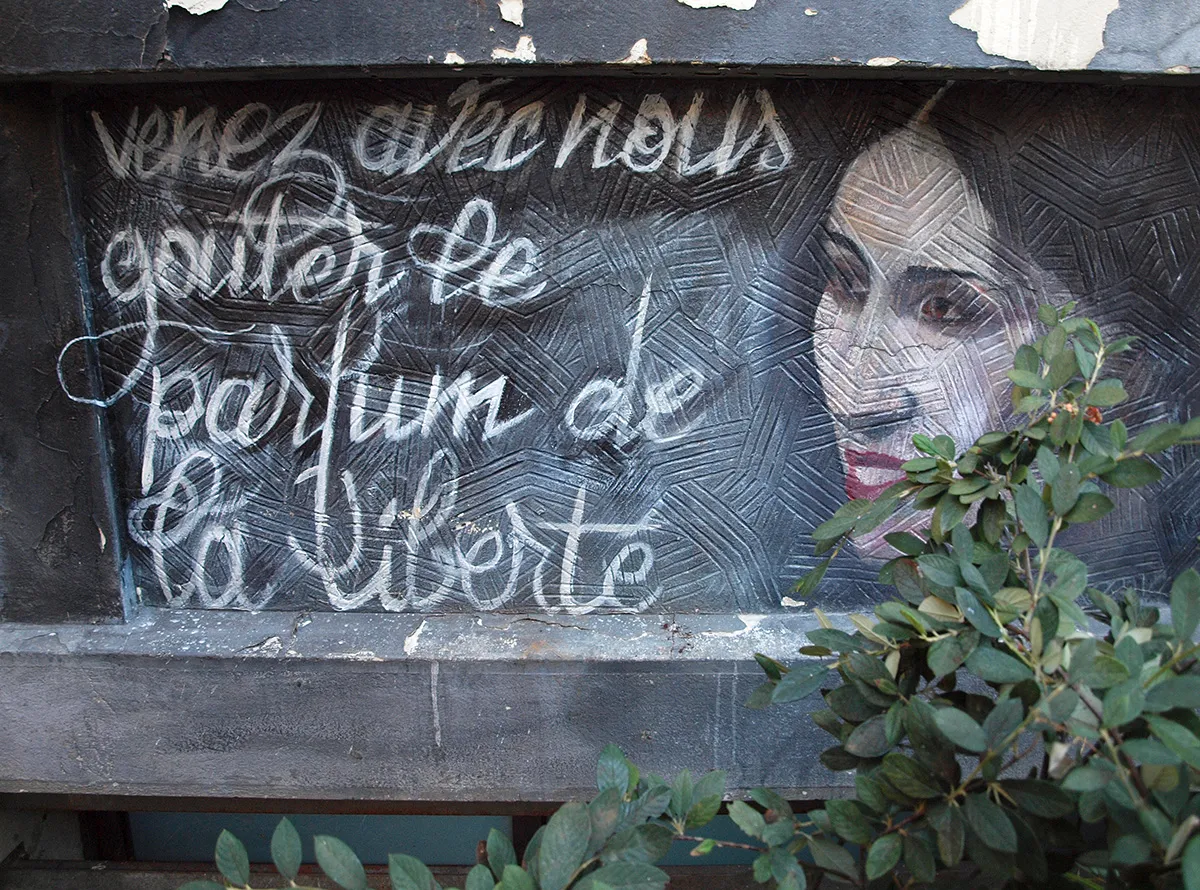 venez avec nous
gouter le
parfum de
la liberte